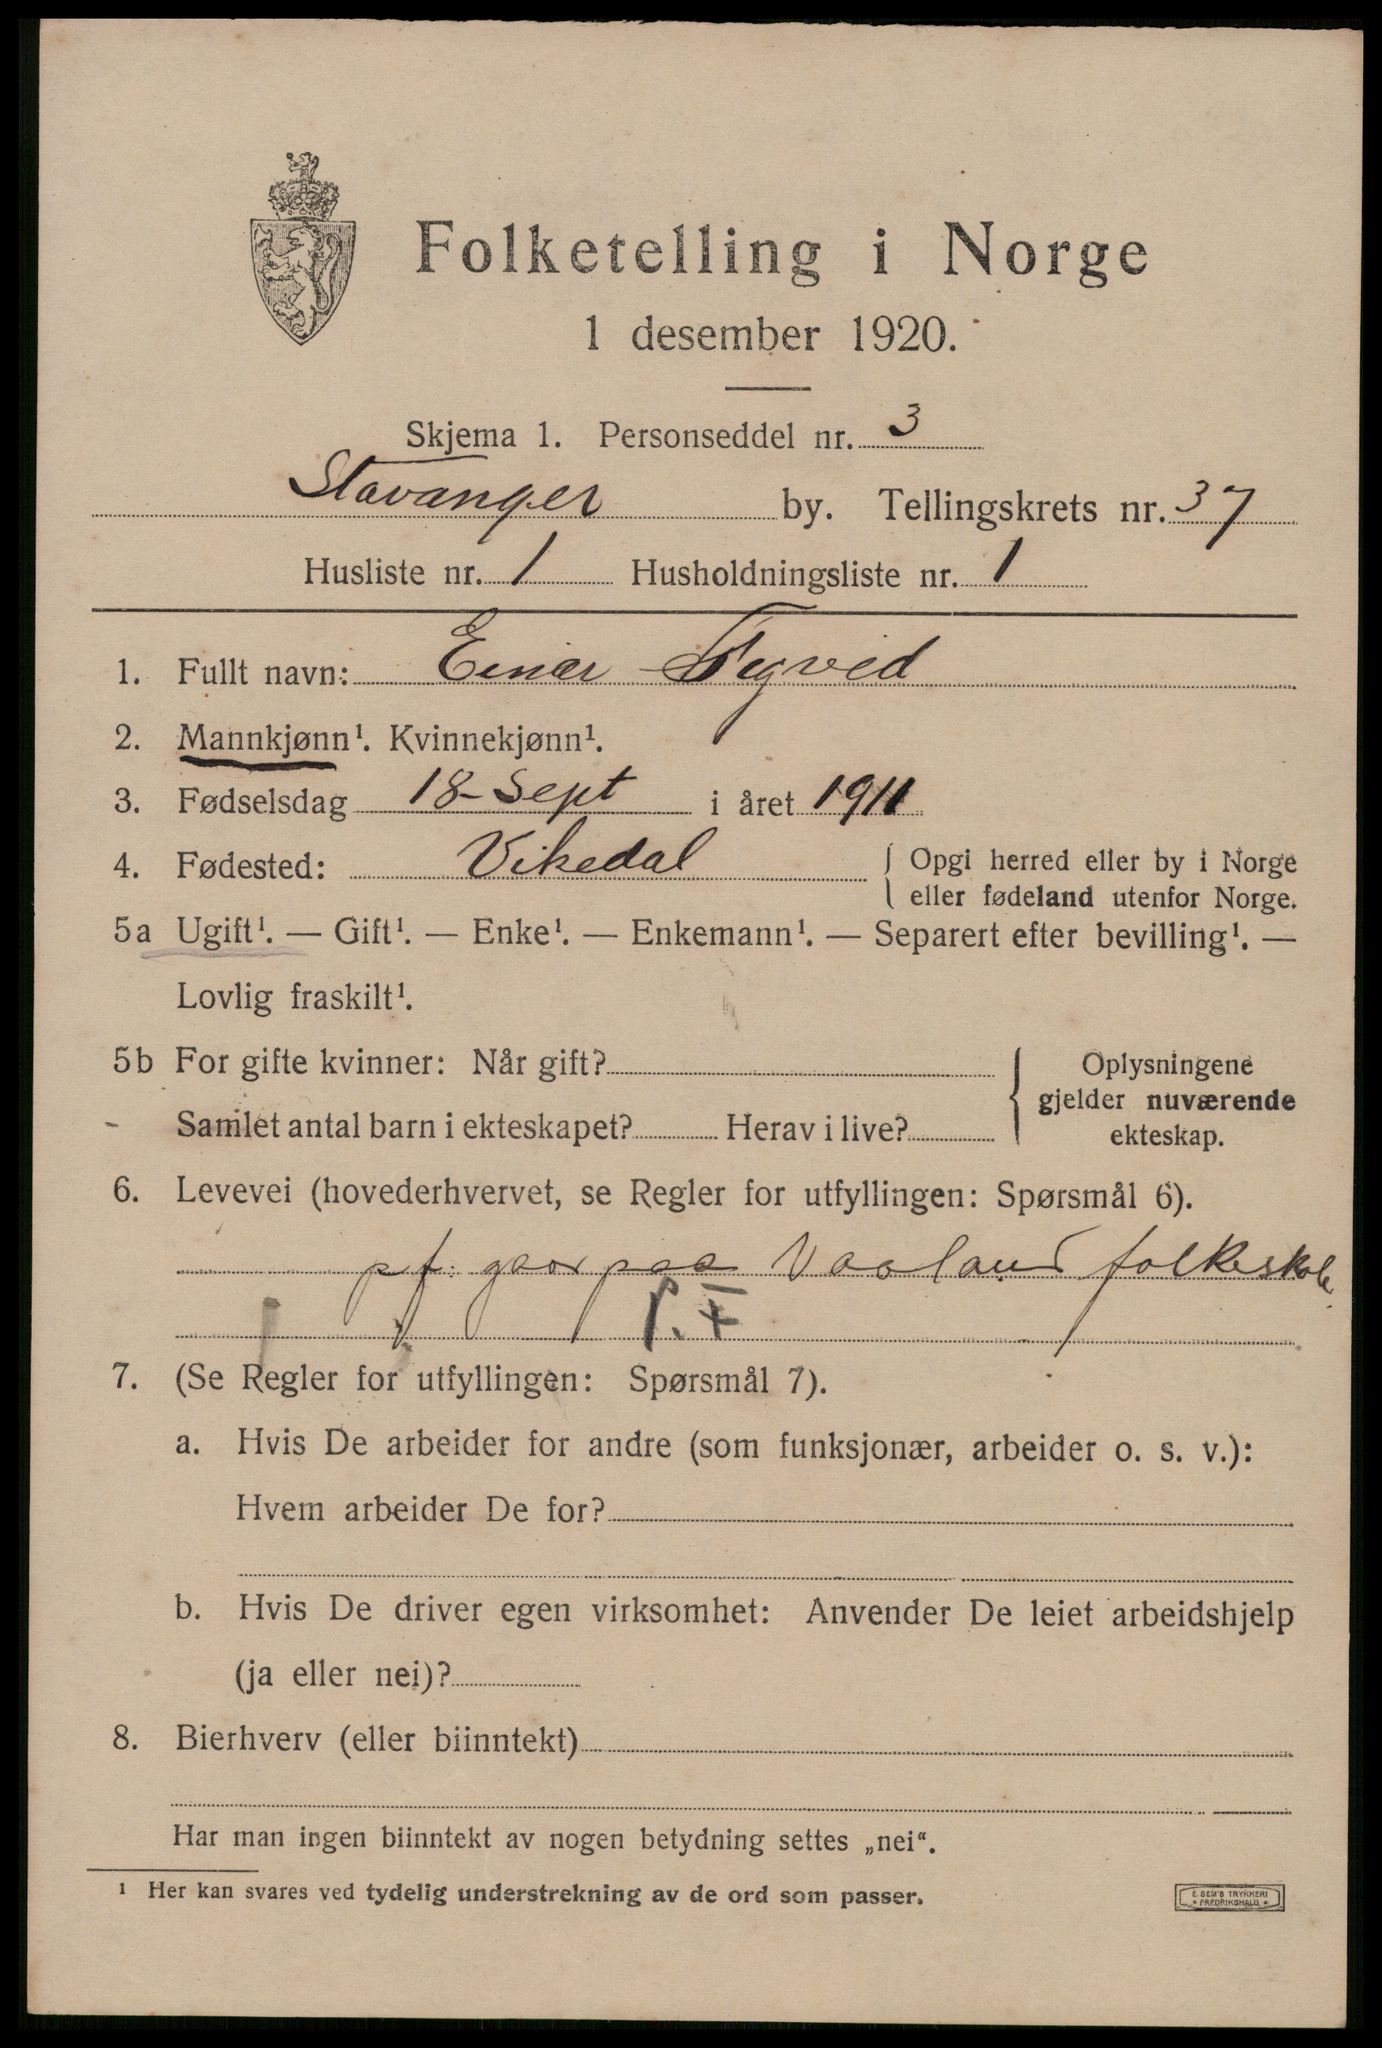 Folketelling i Norge
1 desember 1920.
Skjema 1. Personseddel nr. 3
Stavanger by. Tellingskrets nr. 37
Husliste nr. 1 Husholdningsliste nr. 1
1. Fullt navn: Einar
2. Mannkjønn¹. Kvinnekjønn¹.
3. Fødselsdag 18 Sept i året 1911
4. Fødested: Vikedal { Opgi herred eller by i Norge
eller fødeland utenfor Norge.
5a Ugift¹. — Gift¹. — Enke¹. — Enkemann¹. — Separert efter bevilling¹. —
Lovlig fraskilt¹.
5b For gifte kvinner: Når gift?
Samlet antal barn i ekteskapet? Herav i live?
Oplysningene
gjelder nuværende
ekteskap.
6. Levevei (hovederhvervet, se Regler for utfyllingen: Spørsmål 6).
pf. gaar paa Vaaland folkeskole
7. (Se Regler for utfyllingen: Spørsmål 7).
a. Hvis De arbeider for andre (som funksjonær, arbeider o. s. v.):
Hvem arbeider De for?
b. Hvis De driver egen virksomhet: Anvender De leiet arbeidshjelp
(ja eller nei)?
8. Bierhverv (eller biinntekt)
Har man ingen biinntekt av nogen betydning settes „nei“.
¹ Her kan svares ved tydelig understrekning av de ord som passer.
E. SEM'S TRYKKERI
* FREDRIKSHALD *